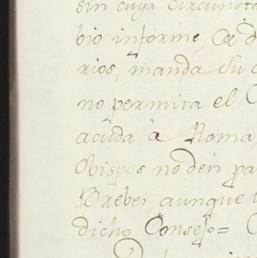 sin cuya circunsta
bio informe
rios, manda su
no permita el
acuda à Roma,
Obispos no den pa
Brebes, aunque
dicho Consejo=